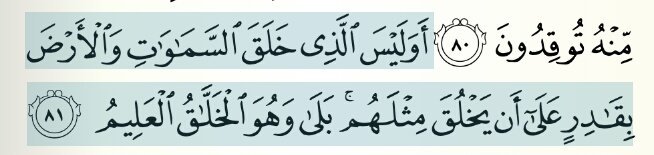 مِّنْهُ تُوقِدُونَ ٨٠ أَوَلَيْسَ ٱلَّذِى خَلَقَ ٱلسَّمَـٰوَٰتِ وَٱلْأَرْضَ
بِقَـٰدِرٍ عَلَىٰٓ أَن يَخْلُقَ مِثْلَهُم ۚ بَلَىٰ وَهُوَ ٱلْخَلَّـٰقُ ٱلْعَلِيمُ ٨١